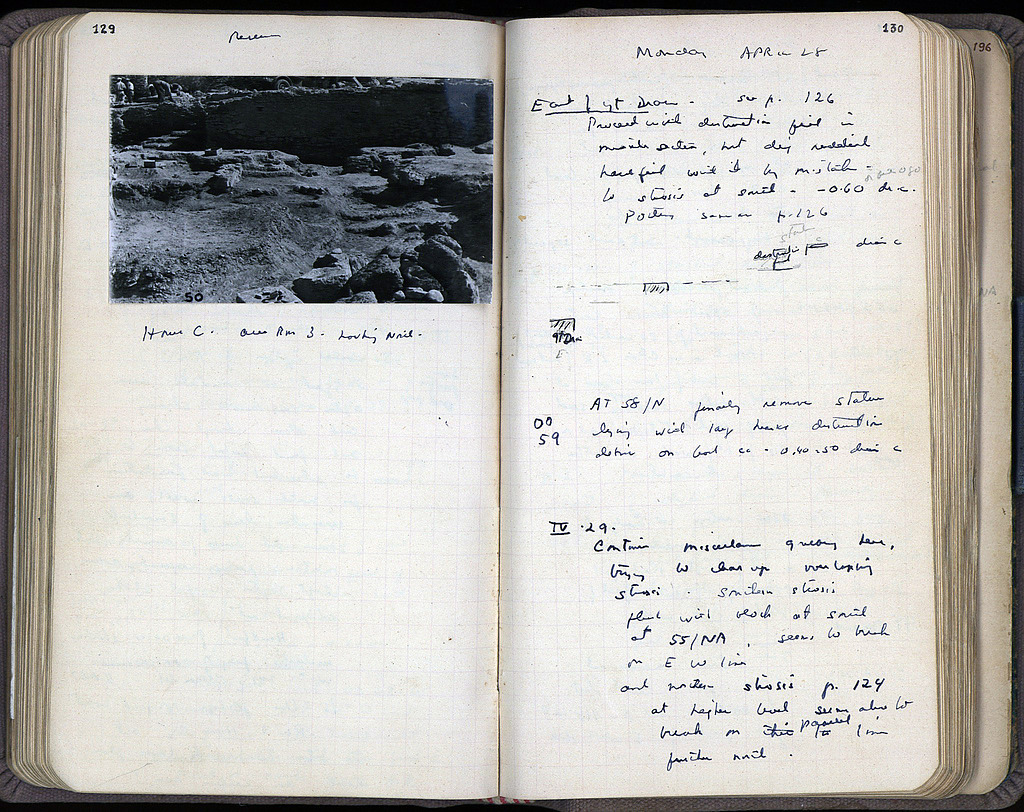 129
50
House C. over Rm 3 - looking North.
130
Monday APRIL 28
East / yt Drain - see p. 126
Proceed with destruction fill in
section, but dig reddish
hard fill with it by mistake -
to strosis at south - -0.60 dr. c.
Pottery same as p. 126
destruction drain c
yt Drain
E
AT 58/N finally remove statue
00
59
lying with large chunks destruction
debris on level ca - 0.40-50 drain c
IV .29.
Continue miscellaneous query here,
trying to clean up overlapping
strosis . Southern strosis
with block at south
at 55/NA, seems to break
on E W line
and northern strosis p. 124
at higher level seems also to
break on parallel line
further north .
196
NA